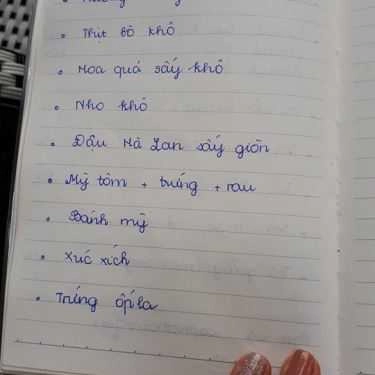 • Thịt bò khô
• Hoa quả sấy khô
• Nho khô
• Đậu Hà Lan sấy giòn
• Mỳ tôm + trứng + rau
• Bánh mỳ
• Xúc xích
• Trứng ốp la